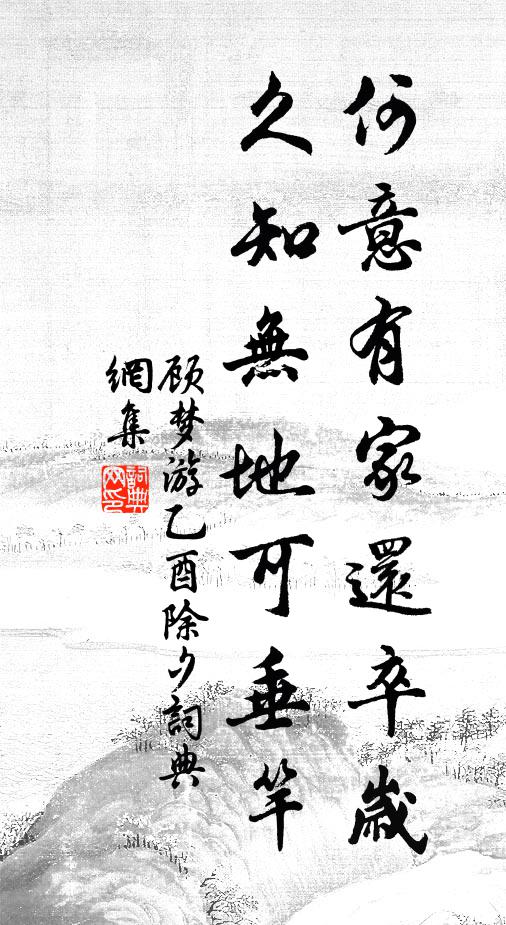 何意有家還卒歲
久知無地可垂竿
顾梦游乙酉除夕詞典
網集
詞典網印